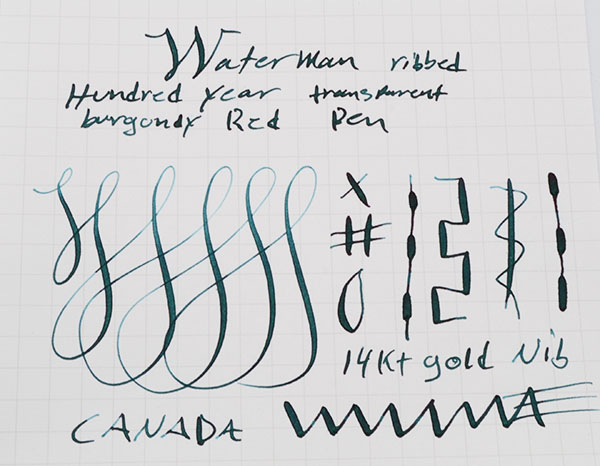 Waterman ribbed
Hundred Year transparent
burgondy Red Pen
X
#
0
14Kt gold Nib
CANADA